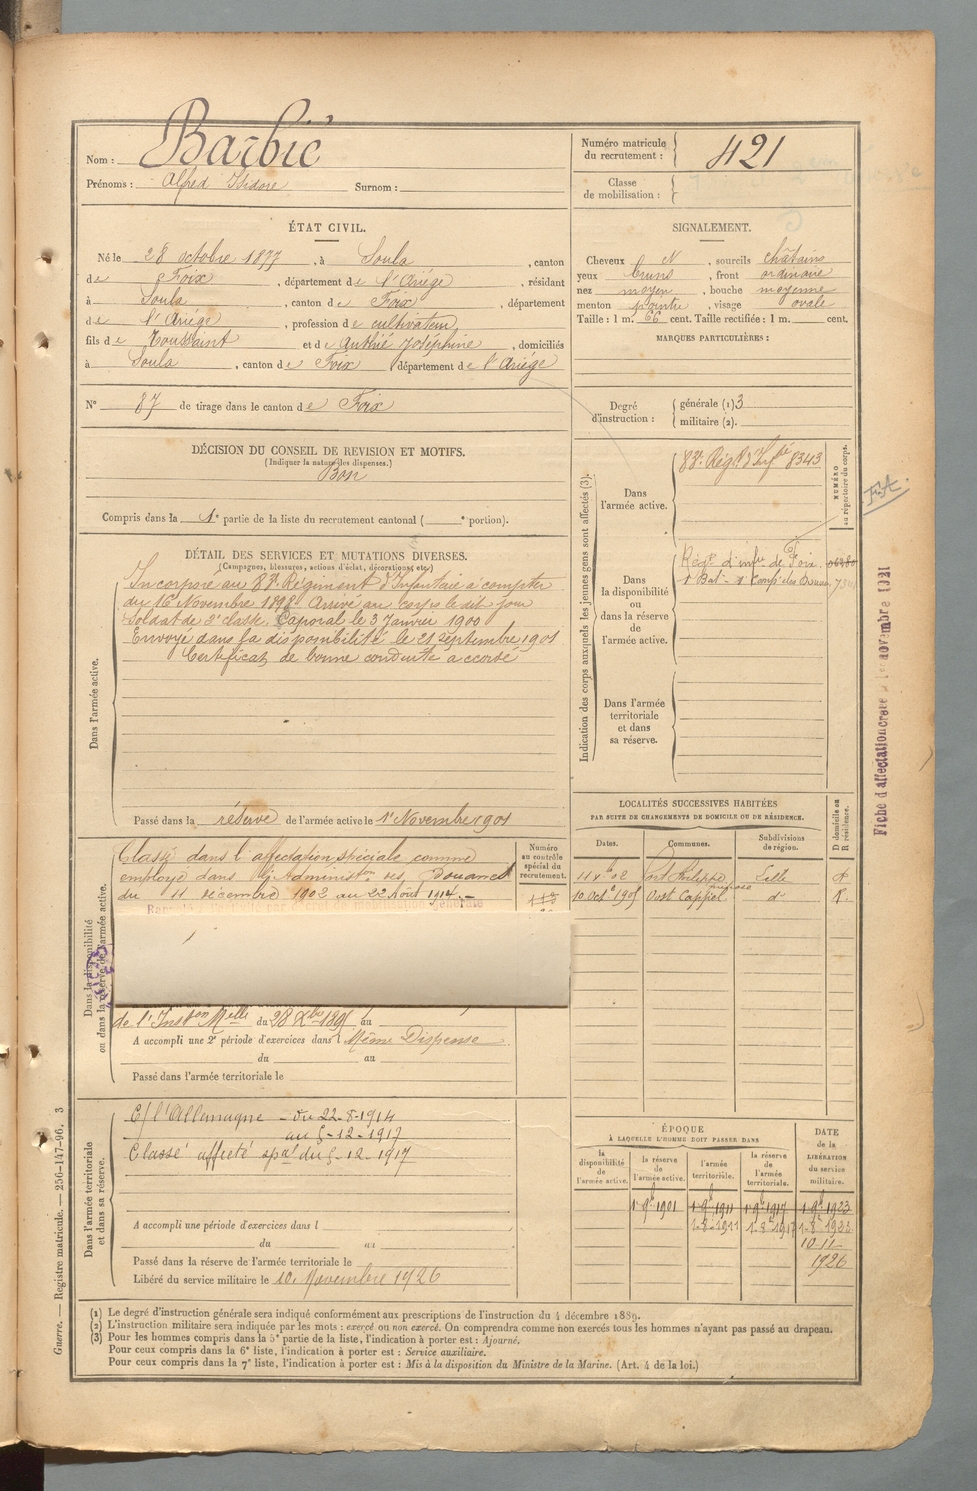 Nom : Barbié
Prénoms : Alfred Isidore Surnom :
Numéro matricule du recrutement : 421
Classe de mobilisation :
ÉTAT CIVIL.
Né le 28 octobre 1877, à Soula, canton
de Foix, département de l'Ariége, résidant
à Soula, canton de Foix, département
de l'Ariége, profession de cultivateur
fils de Toussaint et de Authié Joséphine, domiciliés
à Soula, canton de Foix département de l'Ariége
N° 87 de tirage dans le canton de Foix
SIGNALEMENT.
Cheveux N, sourcils châtains
yeux bruns, front ordinaire
nez moyen, bouche moyenne
menton pointu, visage ovale
Taille : 1 m. 66 cent. Taille rectifiée : 1 m. cent.
MARQUES PARTICULIÈRES :
Degré d'instruction :
générale (1) 3
militaire (2).
DÉCISION DU CONSEIL DE REVISION ET MOTIFS.
(Indiquer la nature des dispenses.)
Bon
Compris dans la 1e partie de la liste du recrutement cantonal ( e portion).
DÉTAIL DES SERVICES ET MUTATIONS DIVERSES.
(Campagnes, blessures, actions d'éclat, décorations, etc.)
Dans l'armée active.
Incorporé au 83e Régiment d'Infanterie à compter
du 16 Novembre 1898. Arrivé au corps le dit jour
Soldat de 2e classe. Caporal le 3 Janvier 1900
Envoyé dans la disponibilité le 21 septembre 1901
Certificat de bonne conduite accordé
Passé dans la réserve de l'armée active le 1er Novembre 1901
Indication des corps auxquels les jeunes gens sont affectés (3).
Dans l'armée active.
83e Régt d'Infie 8343
NUMÉRO au répertoire du corps.
Dans la disponibilité ou dans la réserve de l'armée active.
Régt d'infie de Foix
Dans l'armée territoriale et dans sa réserve.
F.A.
Fiche d'affectation créée novembre 1921
LOCALITÉS SUCCESSIVES HABITÉES
PAR SUITE DE CHANGEMENTS DE DOMICILE OU DE RÉSIDENCE.
Dates. Communes. Subdivisions de région. D domicile ou R résidence.
Fort Philippe Lille
Oost Cappel d° R.
Dans la disponibilité ou dans la réserve de l'armée active.
Numéro au contrôle spécial du recrutement.
Classé dans l'affectation spéciale comme
employé dans l'Administon des Douanes
du 11 décembre 1902 au 22 Août 1914.
de l'Inston Melle du 28 Xbre au
A accompli une 2e période d'exercices dans l Même Dispense
du au
Passé dans l'armée territoriale le
Dans l'armée territoriale et dans sa réserve.
C/ l'Allemagne - du 22-8-1914
au 5-12-1917
Classé affecté spal du 5-12-1917
A accompli une période d'exercices dans l
du au
Passé dans la réserve de l'armée territoriale le
Libéré du service militaire le 10 Novembre 1926
ÉPOQUE
À LAQUELLE L'HOMME DOIT PASSER DANS
la disponibilité de l'armée active. la réserve de l'armée active. l'armée territoriale. la réserve de l'armée territoriale.
DATE de la LIBÉRATION du service militaire.
1er 9bre 1901 1er 9bre 1911 1er 9bre 1917 1er 9bre 1923
1-8-1911 1-8-1917 1-8-1923
10-11-
1926
(1) Le degré d'instruction générale sera indiqué conformément aux prescriptions de l'instruction du 4 décembre 1889.
(2) L'instruction militaire sera indiquée par les mots : exercé ou non exercé. On comprendra comme non exercés tous les hommes n'ayant pas passé au drapeau.
(3) Pour les hommes compris dans la 5e partie de la liste, l'indication à porter est : Ajourné.
Pour ceux compris dans la 6e liste, l'indication à porter est : Service auxiliaire.
Pour ceux compris dans la 7e liste, l'indication à porter est : Mis à la disposition du Ministre de la Marine. (Art. 4 de la loi.)
Guerre. — Registre matricule. — 256-147-96. 3